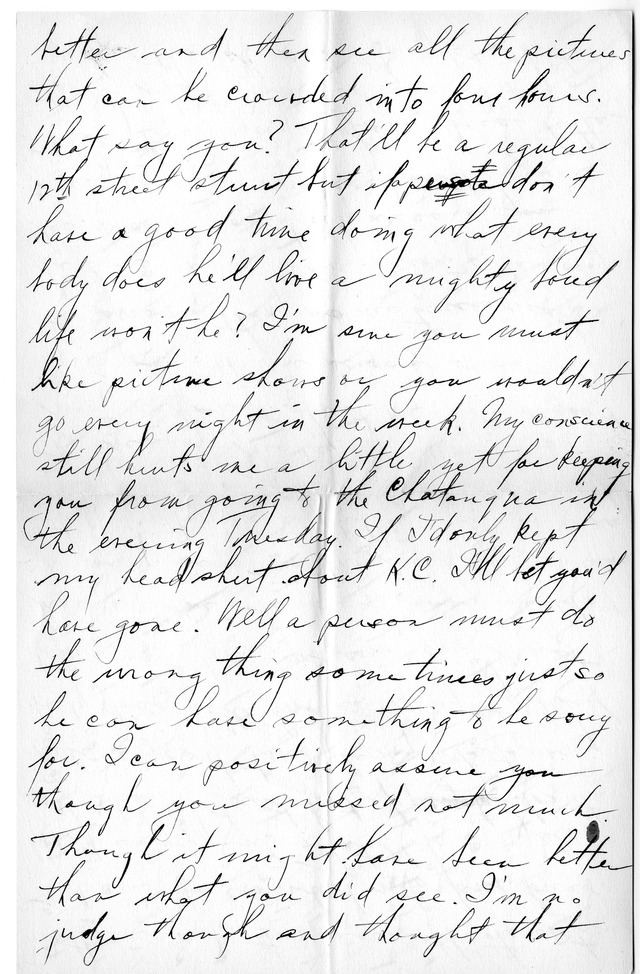 better and then see all the pictures
that can be crowded into four hours.
What say you? That'll be a regular
12th street stunt but if a person don't
have a good time doing what every
body does he'll live a mighty tired
life won't he? I'm sure you must
like picture shows or you wouldn't
go every night in the week. My conscience
still hurts me a little yet for keeping
you from going to the Chataugua in
the evening Tuesday. If I'd only kept
my head shut about K.C. I'll bet you'd
have gone. Well a person must do
the wrong thing sometimes just so
he can have something to be sorry
for. I can positively assure you
though you missed not much.
Though it might have been better
than what you did see. I'm no
judge though and thought that